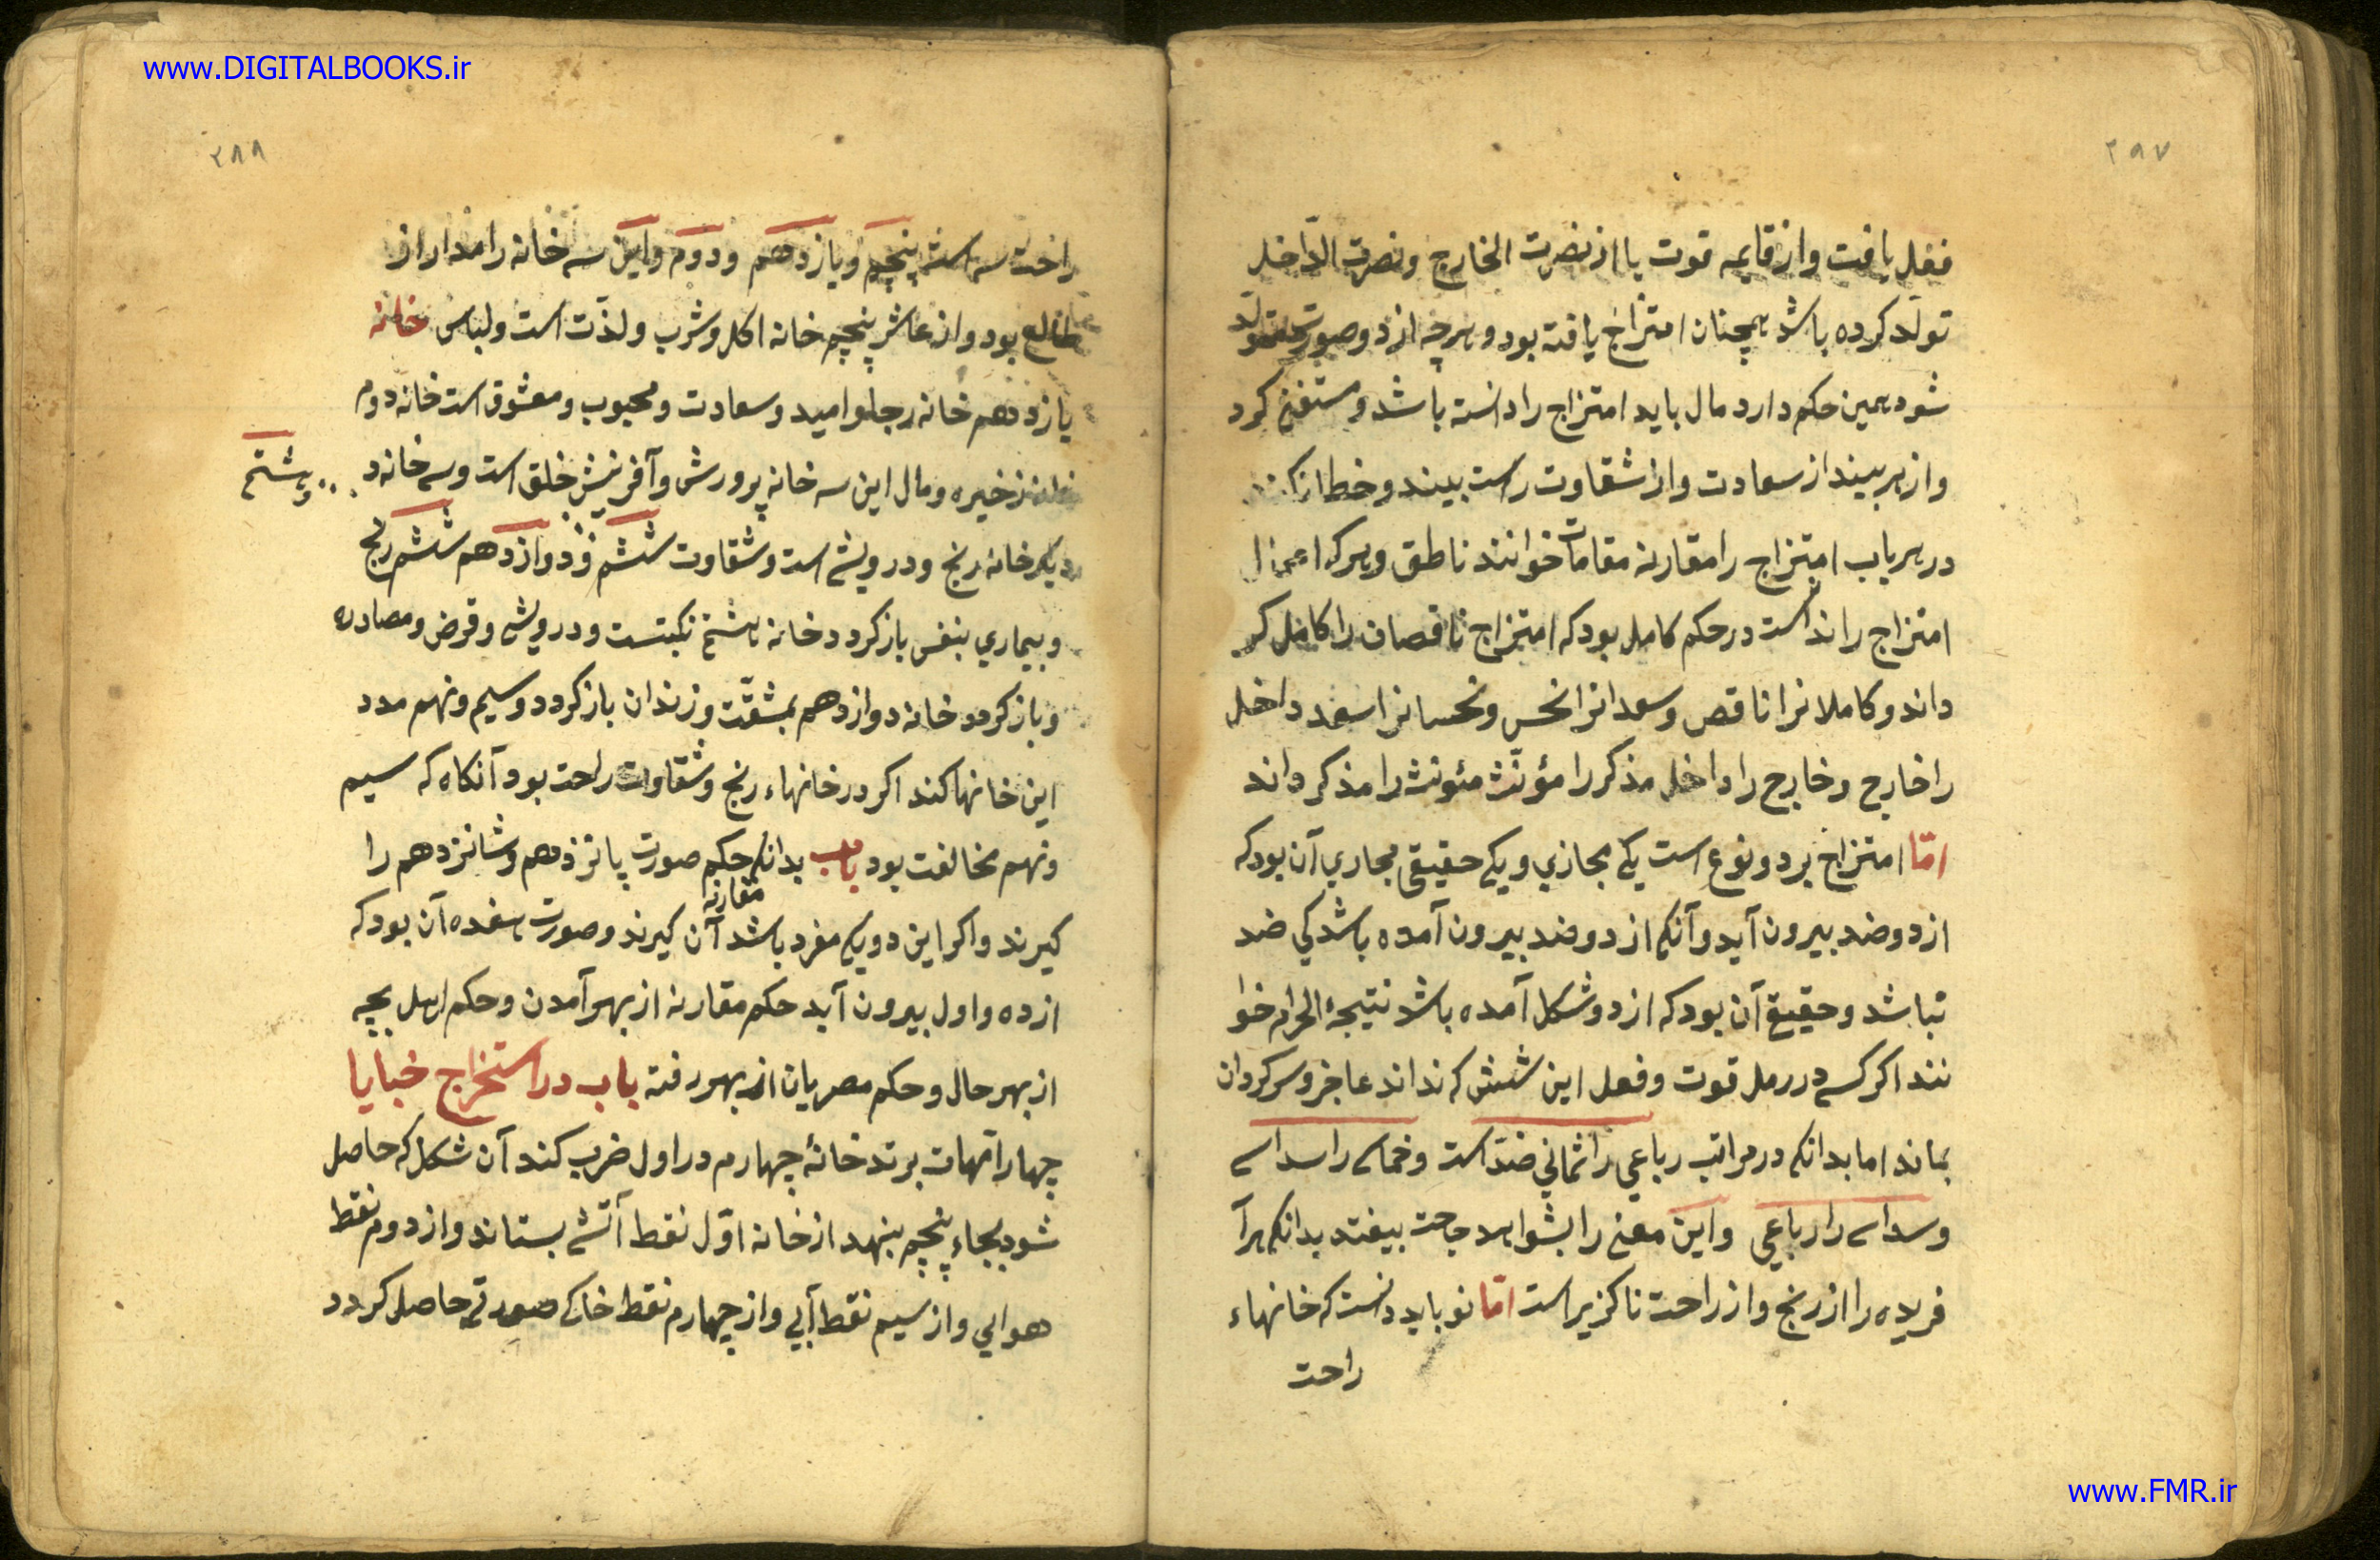 www.DIGITALBOOKS.ir
۲۹۷
فعل یافت و از قایمه قوت یا از نصرت الخارج و نصرت الداخل
تولد کرده باشد همچنان امتزاج یافته بود و هرچه از دو صورت متولد
شود همین حکم دارد مال باید امتزاج را دانسته باشد و مستغنی کرد
و از هر بیند از سعادت و از شقاوت راست بیند و خطا نکند
در هر باب امتزاج را مقارنه مقامات خوانند ناطق و هرکه
امتزاج را نداست در حکم کامل بود که امتزاج ناقصان را کامل کر
داند و کاملانرا ناقص و سعدانرا نحس و نحسانرا سعد داخل
را خارج و خارج را داخل مذکر را مؤنث مئونث را مذکر داند
امّا امتزاج بر دو نوع است یکی مجازي و یکی حقیقی مجاري آن بود که
از دو ضد بیرون آید و آنکه از دو ضد بیرون آمده باشد کی ضد
نباشد و حقیقی آن بود که از دو شکل آمده باشد نتیجۀ الحرام خوا
نند اکر کسے در رمل قوت و فعل این شش که نداند عاجز و سرکردان
بماند اما بدانکه در مراتب رباعي را ثماني ضدّ است و خماسے را سداسے
و سداسے را رباعي و این معنی را بشواهد حاجت بیفتد بدانکه هرآ
فریده را از رنج و از راحت ناکزیر است امّا نو باید دانست که خانهاء
راحت
۲۸۸
راحت سه است پنجم و یازدهم و دوم و این سه خانه را مدار از
طالع بود و از عاشر پنجم خانه اکل و شرب و لذّت است و لباس خانه
یازدهم خانه رجا و امید و سعادت و محبوب و معشوق است خانه دوم
ذخیره و مال این سه خانه پرورش و آفرینش خلق است و سے خانه د
و هشتم
دیکر خانه رنج و درویشی است و شقاوت ششم و دوازدهم ششم رنج
و بیماري بنفس بازکردد خانه هشتم نکبتست و درویشی و قرض و مصادره
و بازکردد خانه دوازدهم بمشقّت و زندان بازکردد و سیم و نهم مدد
این خانها کند اکر در خانهاء رنج و شقاوت راحت بود آنکاه که سیم
و نهم مخالفت بود باب بدانکه حکم صورت پانزدهم و شانزدهم را
مقارنه
کیرند و اکر این دو یکی مفرد باشد آن کیرند و صورت هفده آن بود که
از ده و اول بیرون آید حکم مقارنه از بهر آمدن و حکم اهل
از بهر حال و حکم مصریان از بهر رفته باب در استخراج خبایا
چهار اتمهات برتد خانۀ چهارم در اول ضرب کند آن شکل که حاصل
شود بجاء پنجم بنهد از خانه اوّل نقط آتشی بستاند و از دوم نقط
هوایي و از سیم نقط آبي و از چهارم نقط خاکے صورتے حاصل کردد
www.FMR.ir